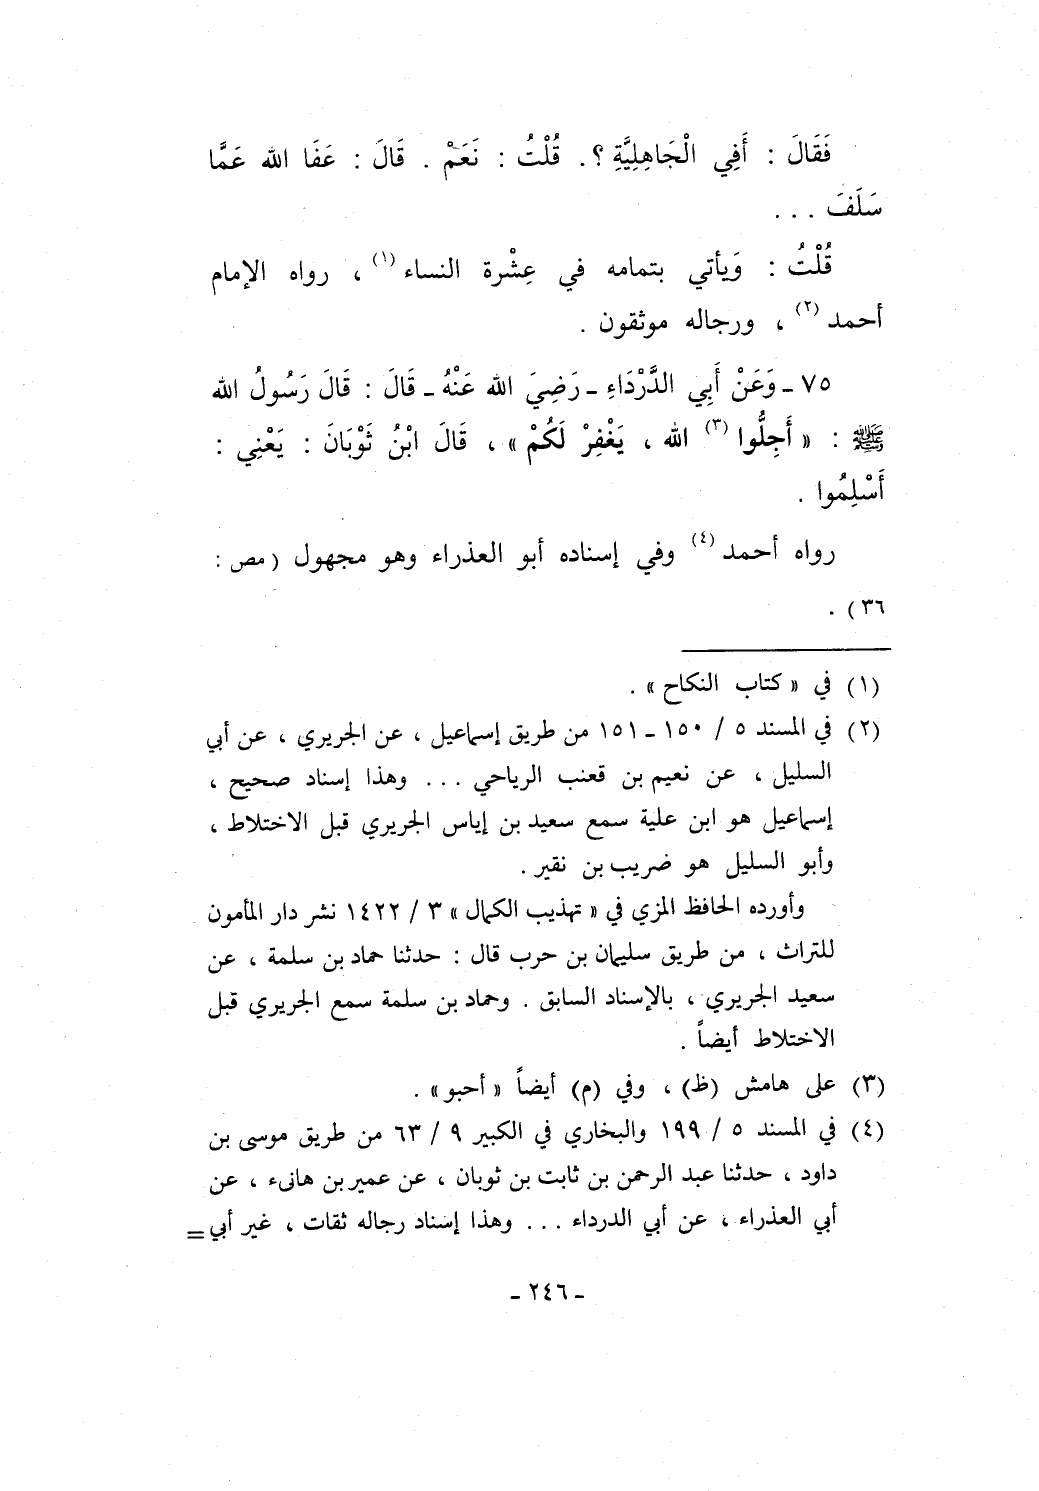 فَقَالَ : أَفِي الْجَاهِلِيَّةِ ؟. قُلْتُ : نَعَمْ . قَالَ : عَفَا الله عَمَّا
سَلَفَ . . .
قُلْتُ : وَيأتي بتمامه في عِشْرة النساء (١) ، رواه الإمام
أحمد (٢) ، ورجاله موثقون .
٧٥ ـ وَعَنْ أَبِي الدَّرْدَاءِ ـ رَضِيَ الله عَنْهُ ـ قَالَ : قَالَ رَسُولُ الله
ﷺ : « أَجِلُّوا (٣) الله ، يَغْفِرْ لَكُمْ » ، قَالَ ابْنُ ثَوْبَانَ : يَعْنِي :
أَسْلِمُوا .
رواه أحمد (٤) وفي إسناده أبو العذراء وهو مجهول ( مص :
٣٦ ) .
(١) في « كتاب النكاح » .
(٢) في المسند ٥ / ١٥٠ ـ ١٥١ من طريق إسماعيل ، عن الجريري ، عن أبي
السليل ، عن نعيم بن قعنب الرياحي . . . وهذا إسناد صحيح ،
إسماعيل هو ابن علية سمع سعيد بن إياس الجريري قبل الاختلاط ،
وأبو السليل هو ضريب بن نقير .
وأورده الحافظ المزي في « تهذيب الكمال » ٣ / ١٤٢٢ نشر دار المأمون
للتراث ، من طريق سليمان بن حرب قال : حدثنا حماد بن سلمة ، عن
سعيد الجريري ، بالإسناد السابق . وحماد بن سلمة سمع الجريري قبل
الاختلاط أيضاً .
(٣) على هامش (ظ) ، وفي (م) أيضاً « أحبو » .
(٤) في المسند ٥ / ١٩٩ والبخاري في الكبير ٩ / ٦٣ من طريق موسى بن
داود ، حدثنا عبد الرحمن بن ثابت بن ثوبان ، عن عمير بن هانىء ، عن
أبي العذراء ، عن أبي الدرداء . . . وهذا إسناد رجاله ثقات ، غير أبي =
ـ ٢٤٦ ـ